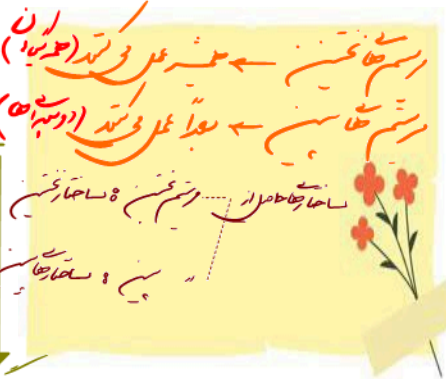 مریستم های نخستین ← همیشه عمل می کنند
مریستم های پسین ← بعداً عمل می کنند (دولپه ای ها)
ساختارهای حاصل از مریستم نخستین : ساختار نخستین
" پسین : ساختارهای پسین